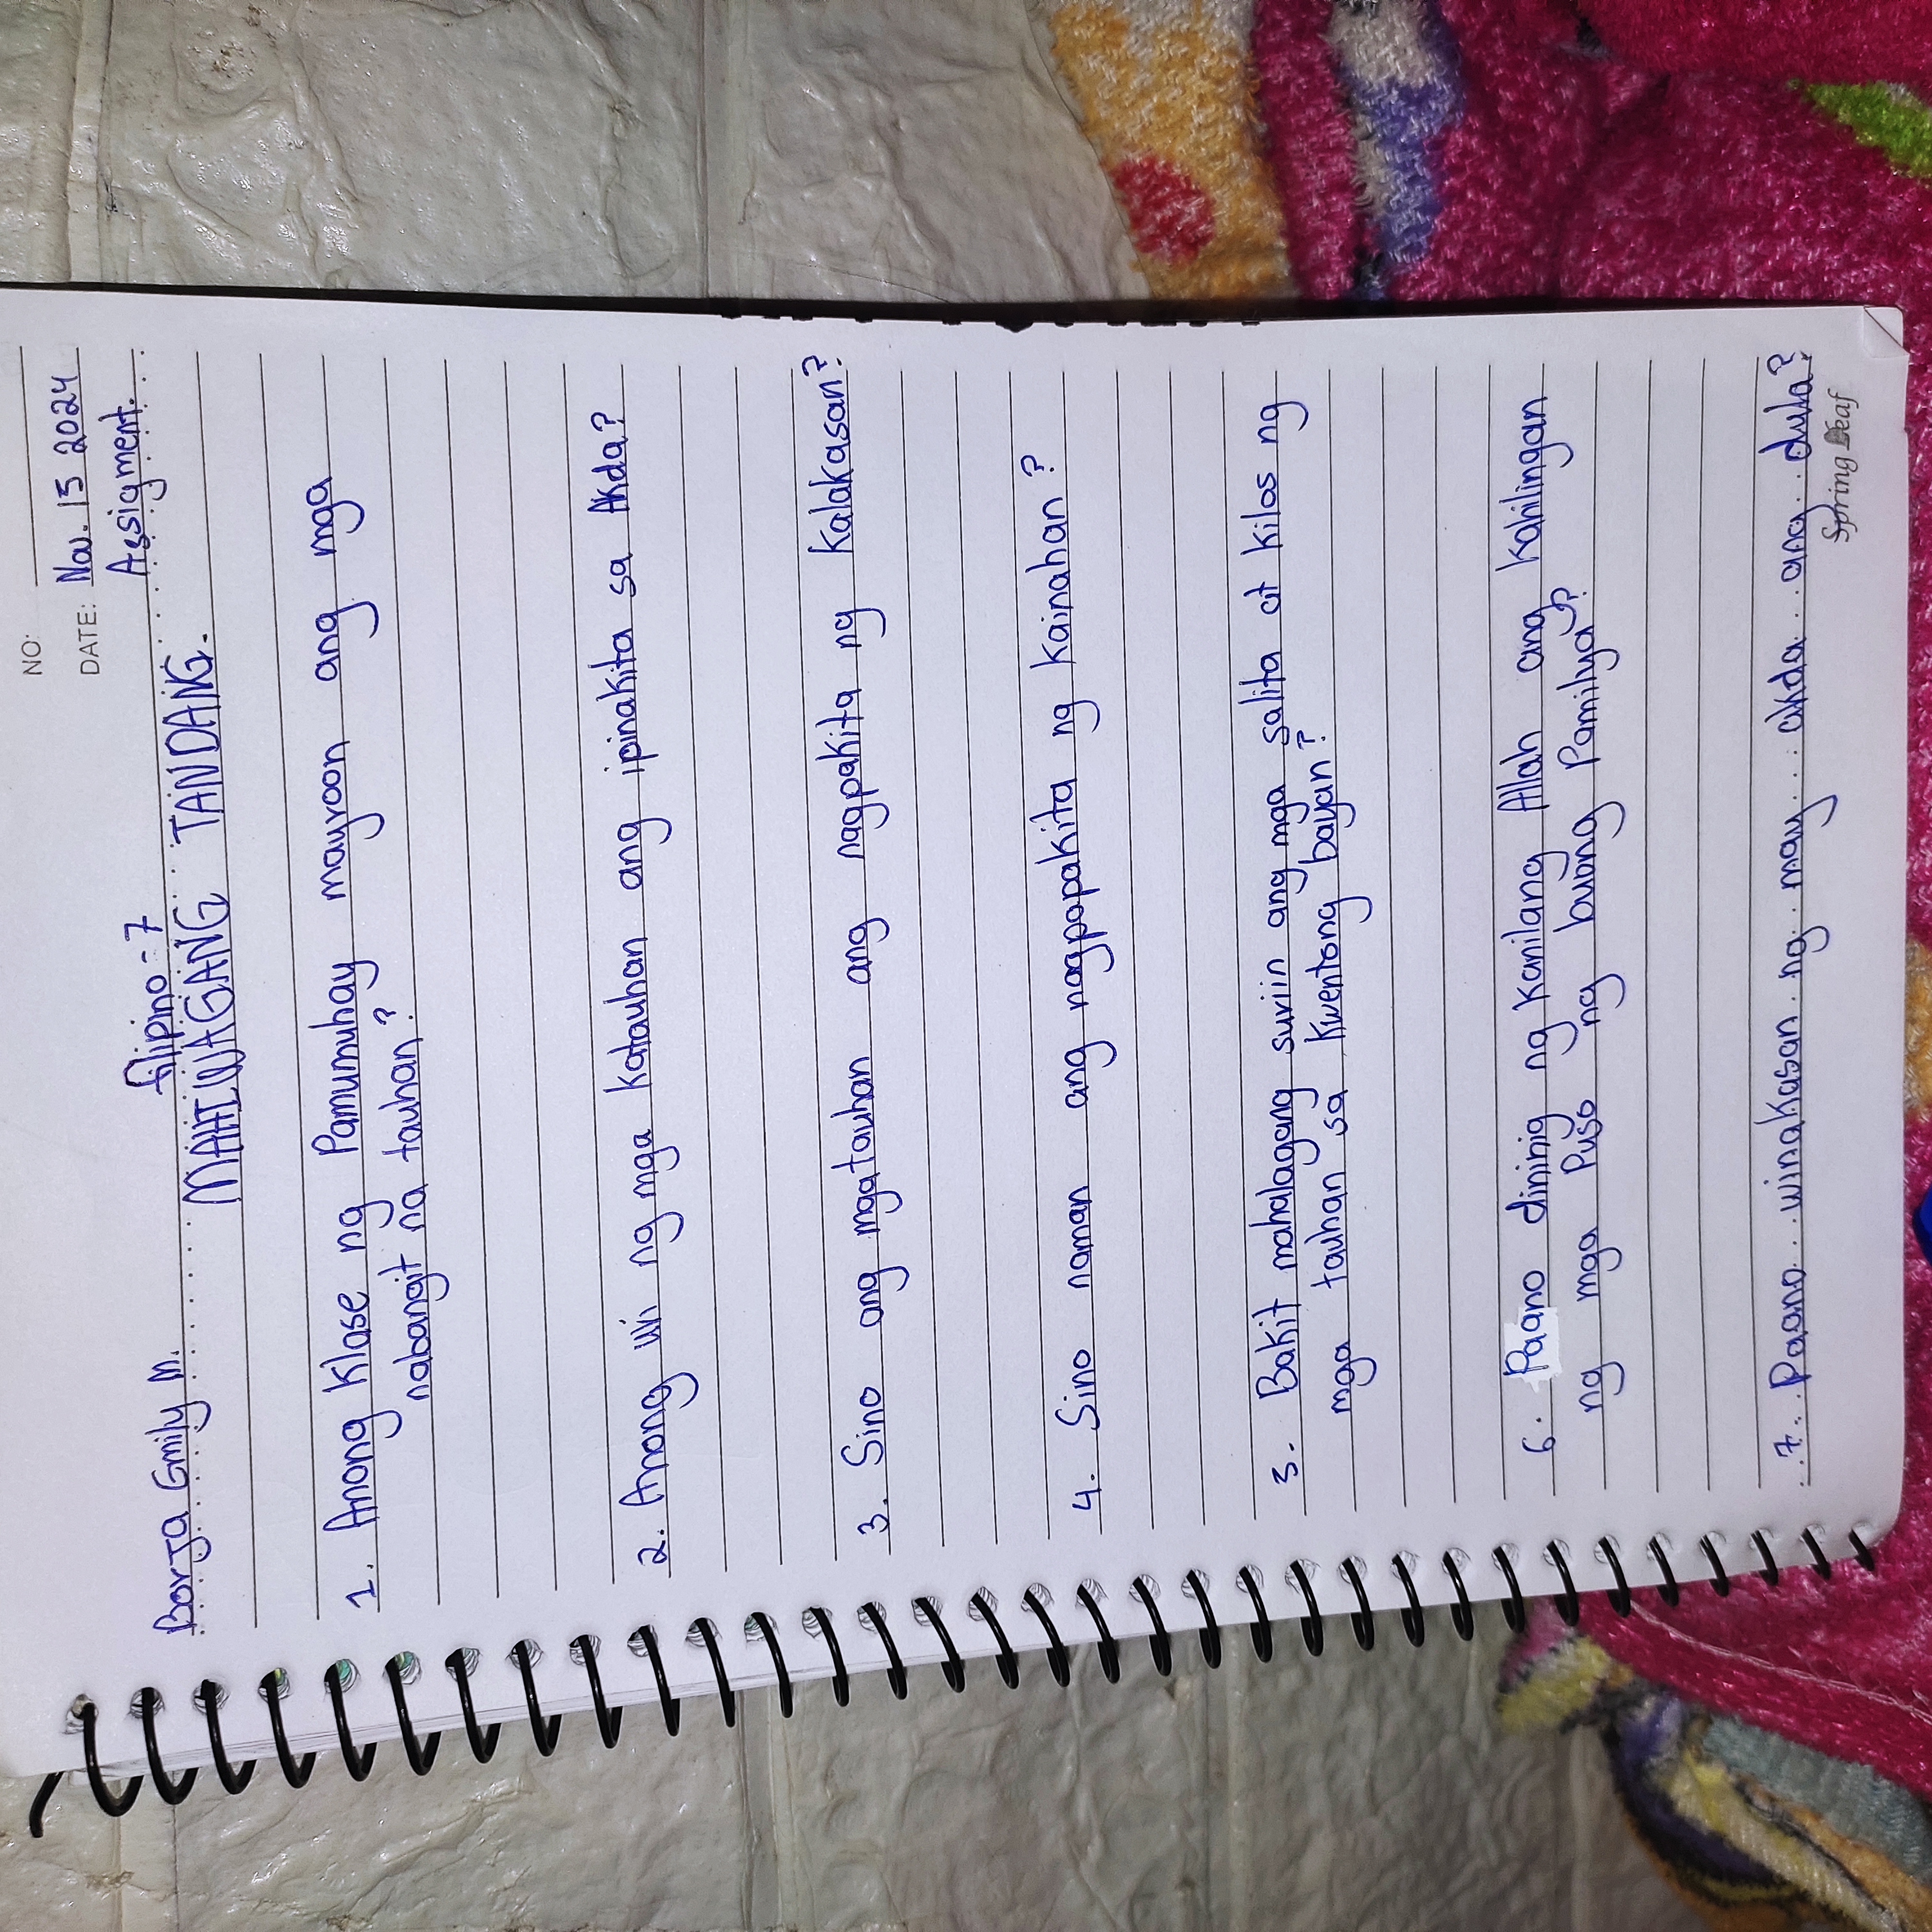 NO:
DATE: Nov. 15 2024
Assigment.
Borja Emily M.
filipino - 7
MAHIWAGANG TANDANG.
1. Anong Klase ng Pamumuhay mayroon ang mga
nabangit na tauhan?
2. Anong uri ng mga Katauhan ang ipinakita sa Akda?
3. Sino ang mgatauhan ang nagpakita ng Kalakasan?
4. Sino naman ang nagpapakita ng Kainahan?
5. Bakit mahalagang suriin ang mga salita at Kilos ng
mga tauhan sa Kwentong bayan?
6. Paano dininig ng Kanilang Allah ang Kahilingan
ng mga Puso ng buong Pamilya?
7. Paano winakasan ng may akda ang dula?
Spring Leaf